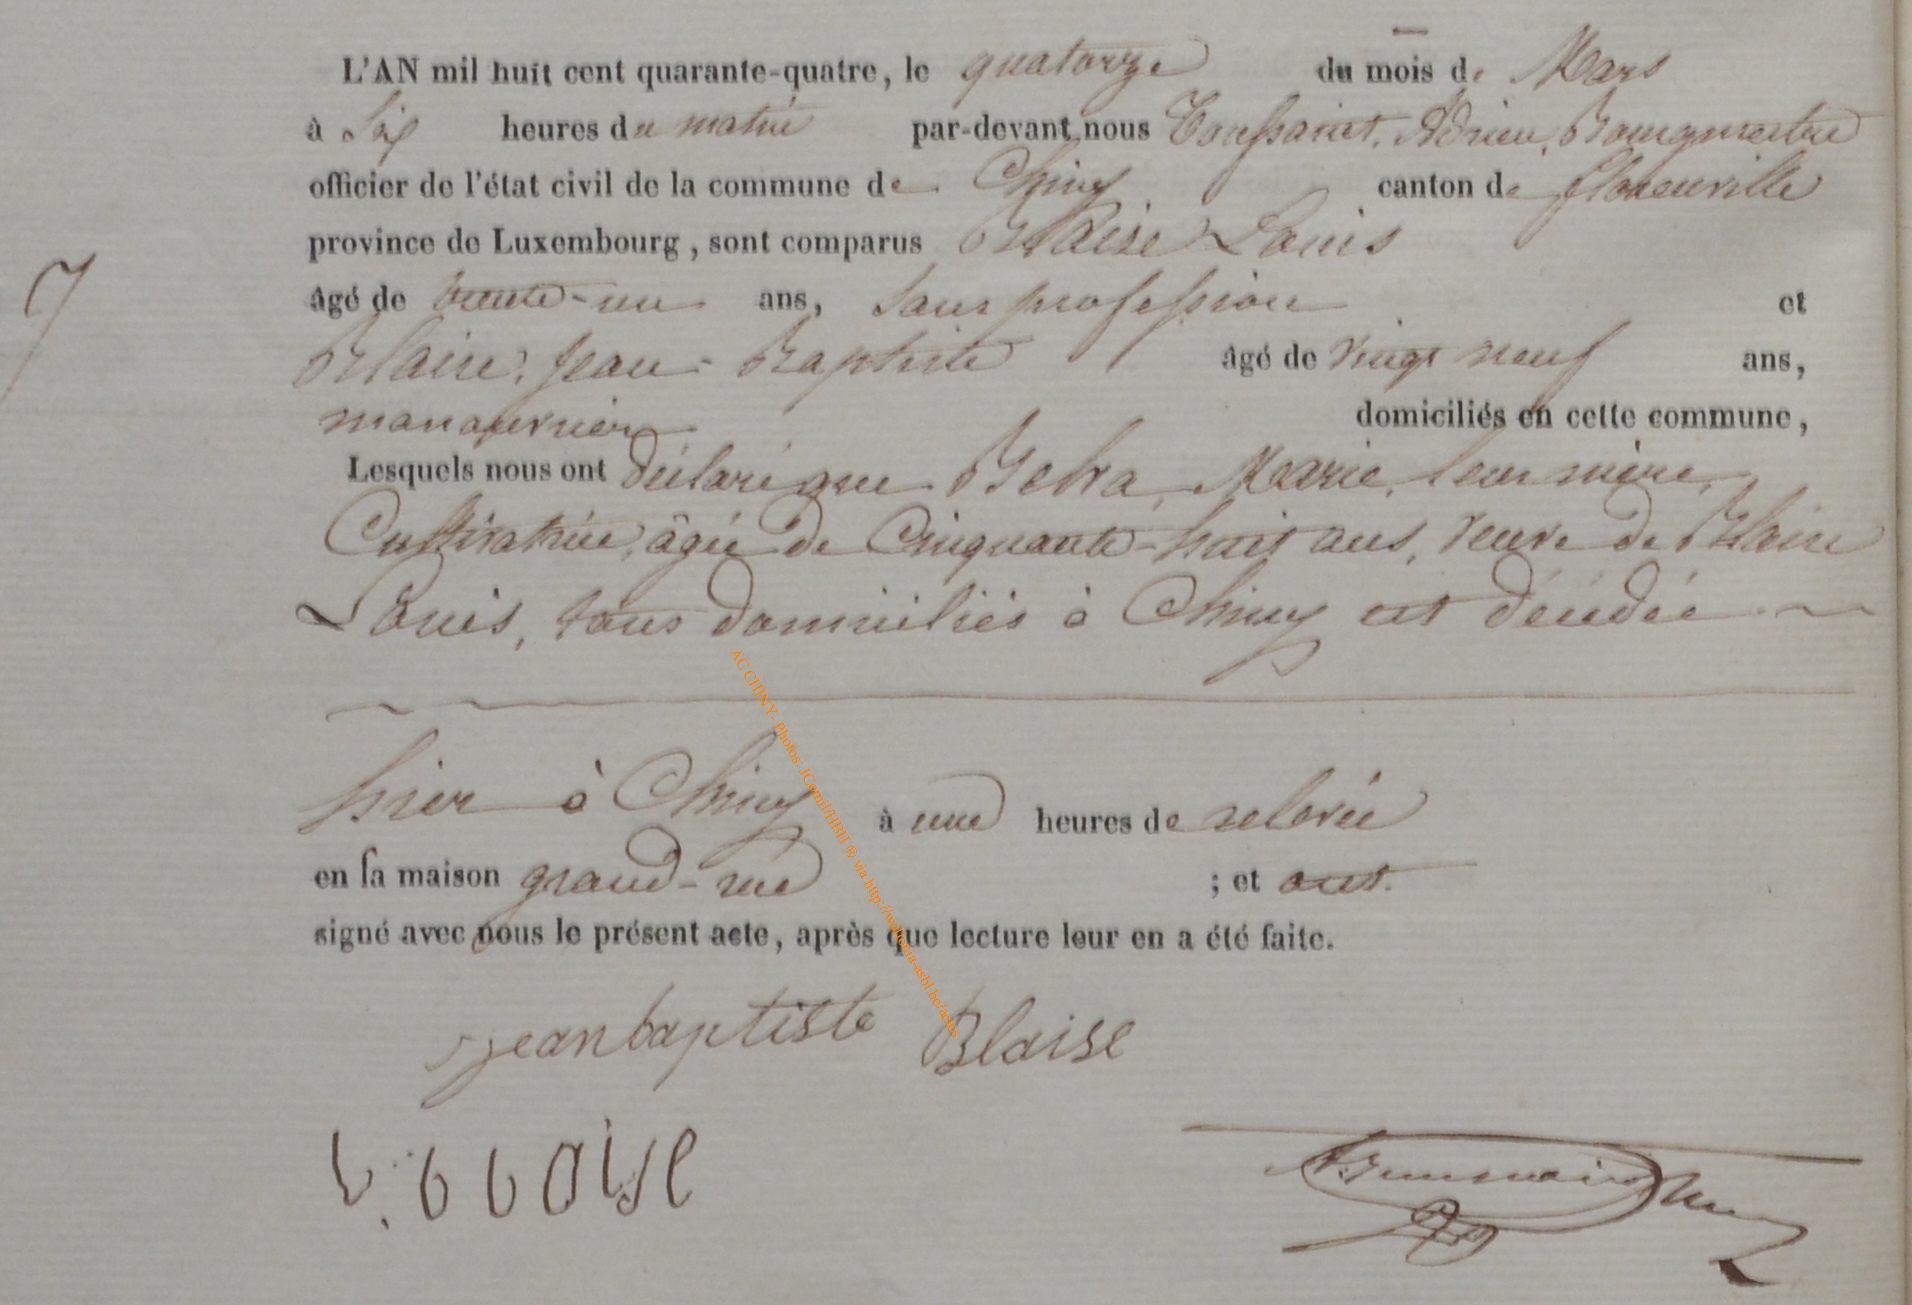 L'AN mil huit cent quarante-quatre, le quatorze du mois de Mars
à Six heures du matin par-devant nous Toussaint, Adrien, Bourgmestre
officier de l'état civil de la commune de Chiny canton de florenville
province de Luxembourg, sont comparus Blaise Louis
âgé de trente-un ans, Sans profession et
7
Blaise, Jean-Baptiste âgé de vingt neuf ans,
manouvrier domiciliés en cette commune,
Lesquels nous ont déclaré que Marie, leur mère,
Cultivatrice, âgée de Cinquante-huit ans, veuve de Blaise
Louis, tous domiciliés à Chiny est décédée
hier à Chiny à une heures de relevée
en sa maison grand-rue ; et ont
signé avec nous le présent acte, après que lecture leur en a été faite.
jeanbaptiste Blaise